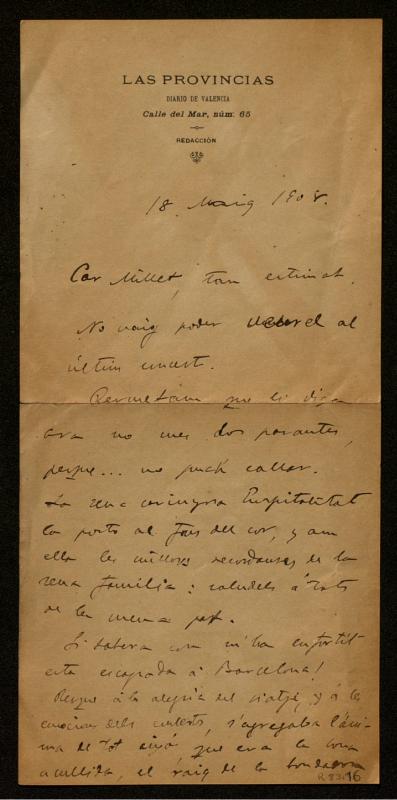 LAS PROVINCIAS
DIARIO DE VALENCIA
Calle del Mar, núm. 65
REDACCIÓN
18 Maig 1908.
Car Millet, tan estimat.
No vaig poder veurel al
últim concert.
Permetam que li diga
ara no mes dos paraules,
perque... no puch callar.
La seua carinyosa hospitalitat
la porto al fons del cor, y am
ella les millors recordanses de la
seua familia: saludels á tots
de la meua part.
Si sabera com m'ha enfortit
esta escapada á Barcelona!
Perque á la alegria del viatje, y á les
emocions dels concerts, s'agregaba l'áni-
ma de tot aixó que era la bona
acullida, el raig de la bondadosa
16